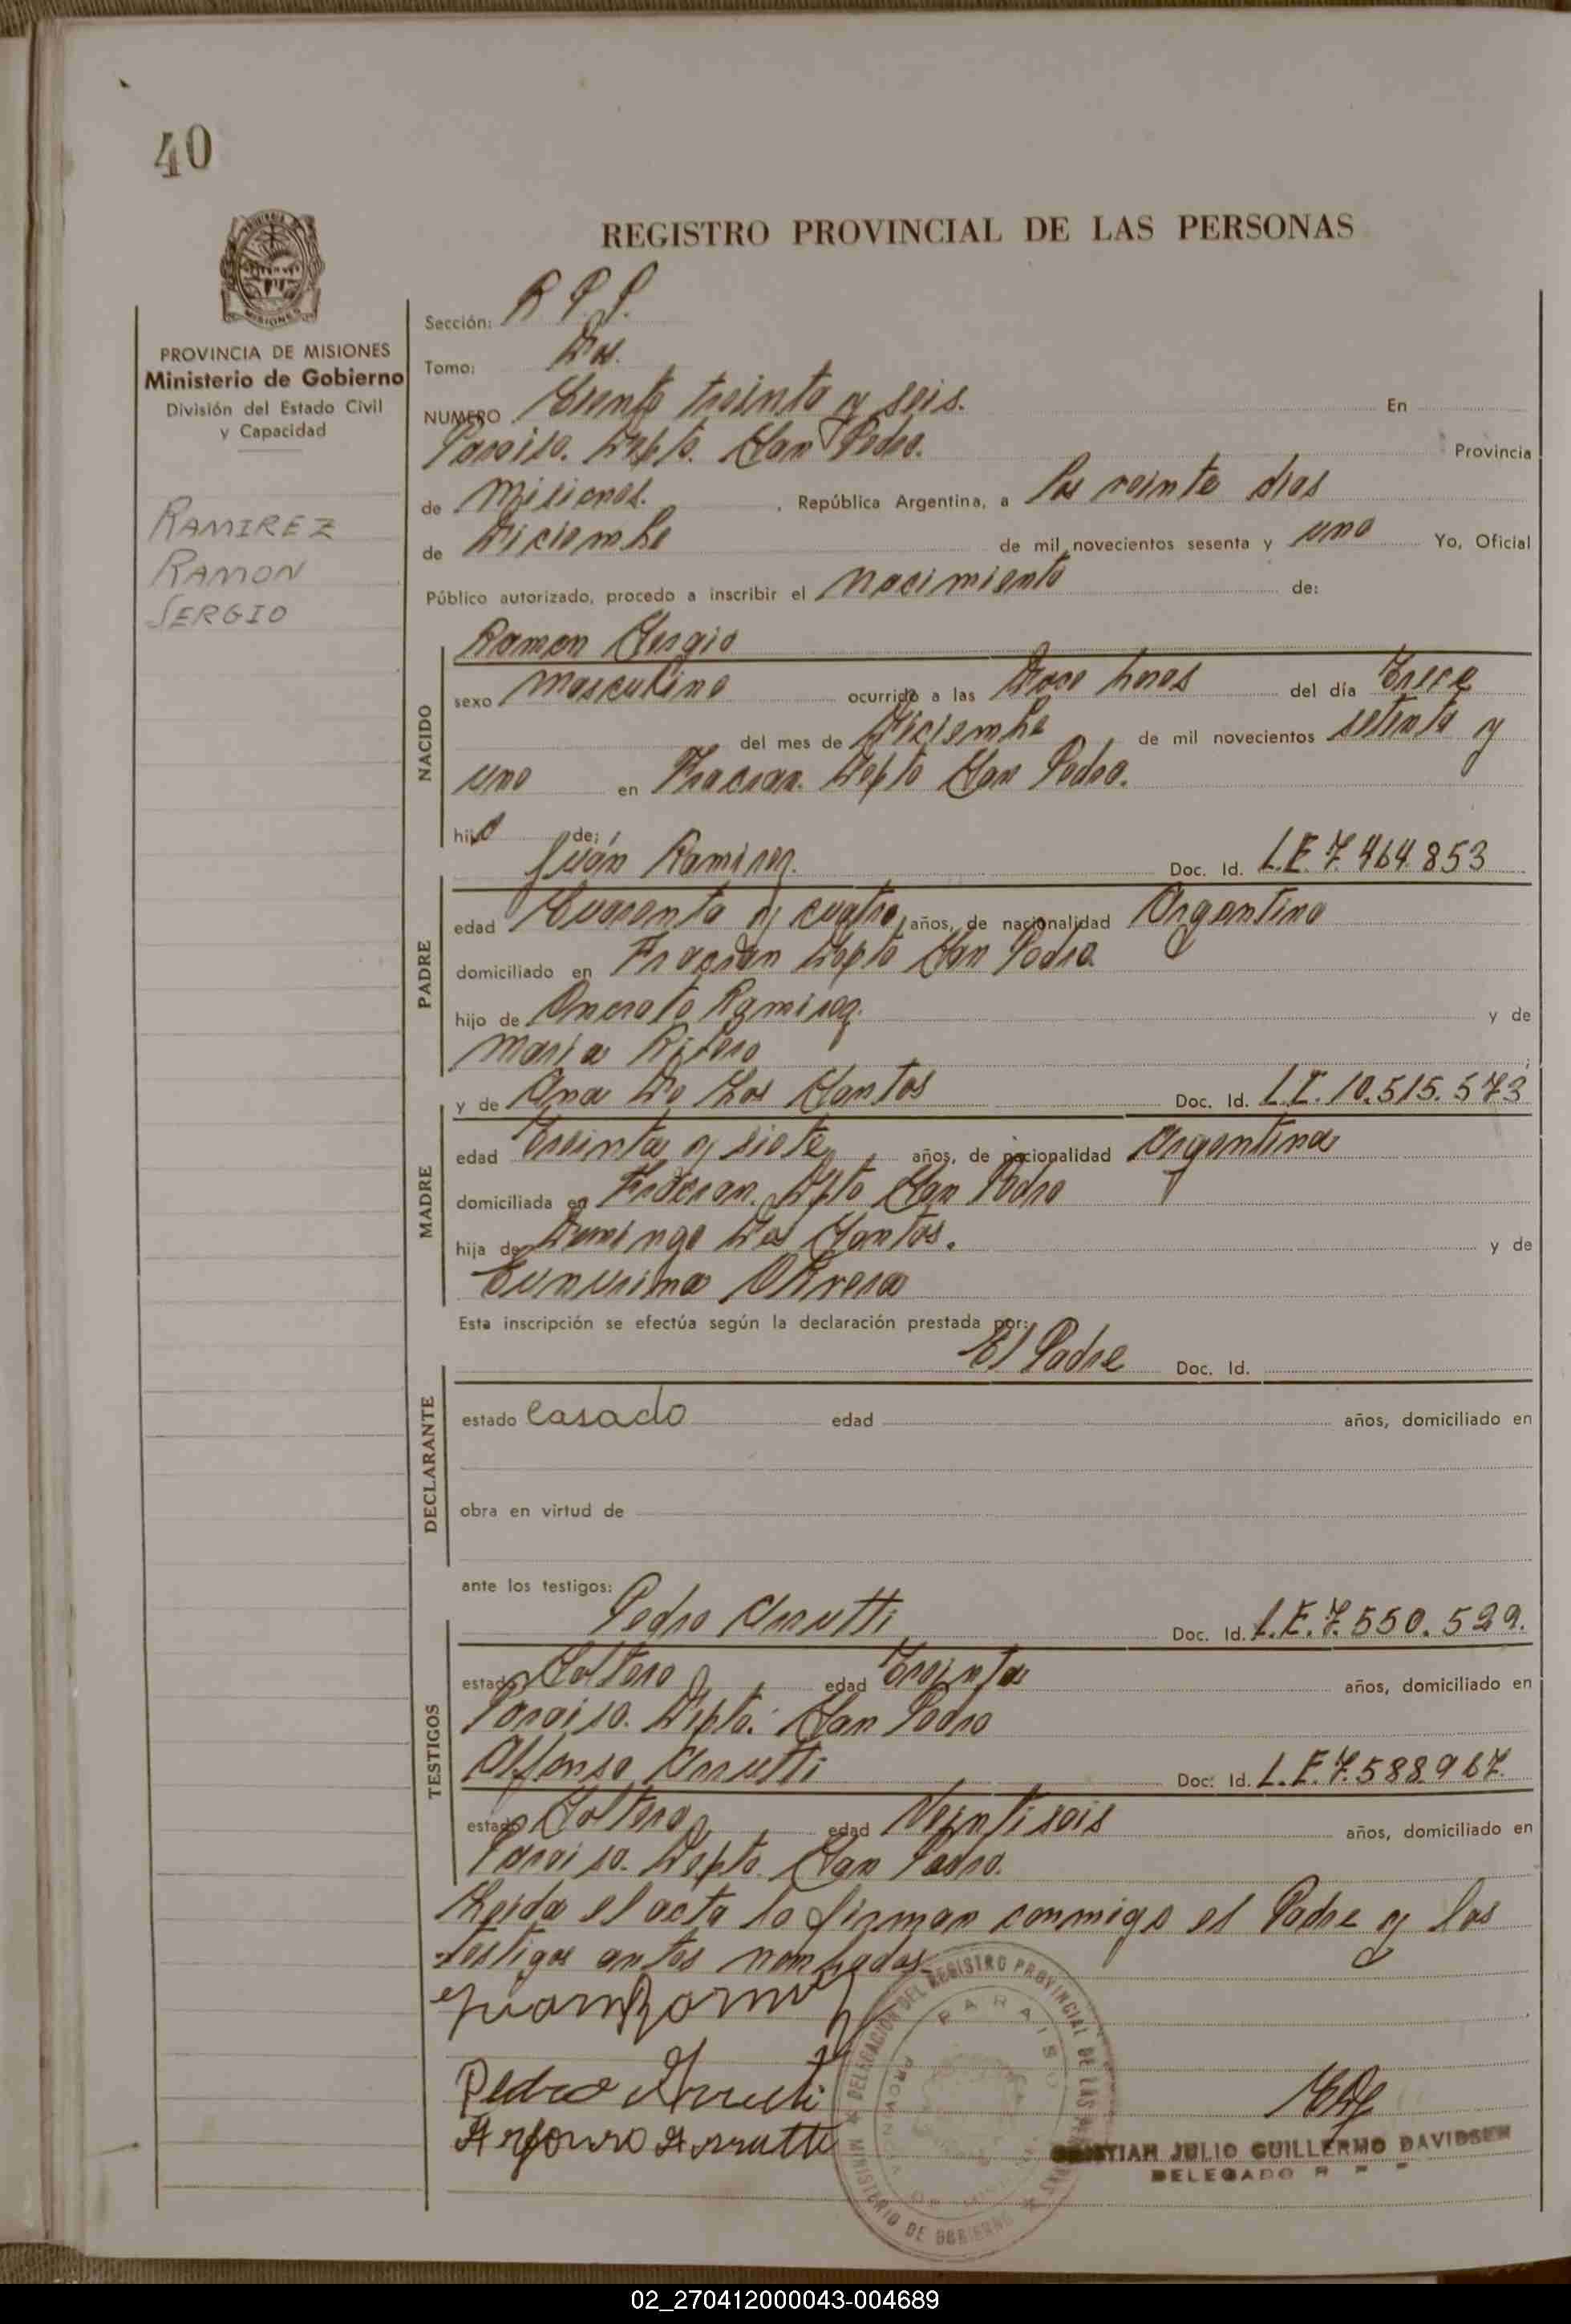 40
REGISTRO PROVINCIAL DE LAS PERSONAS
PROVINCIA DE MISIONES
Ministerio de Gobierno
División del Estado Civil
y Capacidad
RAMIREZ
RAMON
SERGIO
Sección: R P. P.
Tomo: Dos.
NUMERO Ciento treinta y seis. En
Paraiso. Depto. San Pedro. Provincia
de Misiones. , República Argentina, a los veinte dias
de Diciembre de mil novecientos sesenta y uno Yo, Oficial
Público autorizado, procedo a inscribir el Nacimiento de:
NACIDO
Ramon Sergio
sexo Masculino ocurrido a las Doce horas del día Trece
del mes de Diciembre de mil novecientos setenta y
uno en Fracran. Depto San Pedro.
hijo de:
PADRE
Juán Ramirez. Doc. Id. L.E. 7.464.853
edad Cuarenta y cuatro años, de nacionalidad Argentino
domiciliado en Fracran Depto San Pedro.
hijo de Ramirez. y de
Maria
MADRE
y de Ana De Los Santos Doc. Id. 10.515.573
edad Treinta y siete años, de nacionalidad Argentina
domiciliada en Fracran. Depto San Pedro
hija de Domingo Dos Santos. y de
Esta inscripción se efectúa según la declaración prestada por:
El Padre Doc. Id.
DECLARANTE
estado casado edad años, domiciliado en
obra en virtud de
ante los testigos:
TESTIGOS
Pedro Arrutti Doc. Id. L.E. 7.550.529.
estado Soltero edad Treinta años, domiciliado en
Paraiso. Depto. San Pedro
Alfonso Arrutti Doc. Id. L.E. 7.588.967.
estado Soltero edad Veintiseis años, domiciliado en
Paraiso. Depto. San Pedro.
Leida el acta la firman conmigo el Padre y los
testigos antes nombrados.
Juan Ramirez
Pedro Arrutti
Arrutti
DELEGACION DEL REGISTRO PROVINCIAL DE LAS PERSONAS
MINISTERIO DE GOBIERNO
PARAISO
CRISTIAN JULIO GUILLERMO DAVIDSEN
DELEGADO R P P
02_270412000043-004689